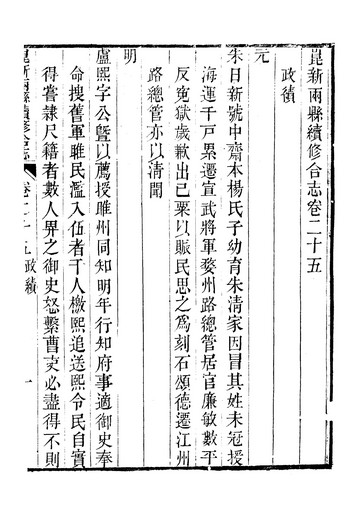 崑新兩縣續修合志卷二十五
政績
元
朱日新號中齋本楊氏子幼育朱清家因冒其姓未冠授
海運千戸累遷宣武將軍婺州路總管居官廉敏數平
反寃獄歲歉出己粟以賑民思之爲刻石頌德遷江州
路總管亦以淸聞
明
盧熙字公曁以薦授睢州同知明年行知府事適御史奉
命搜舊軍睢民濫入伍者千人檄熙追送熙令民自實
得嘗隸尺籍者數人畀之御史怒繫曹吏必盡得不則
崑新兩縣續修合志 卷二十五 政績 一